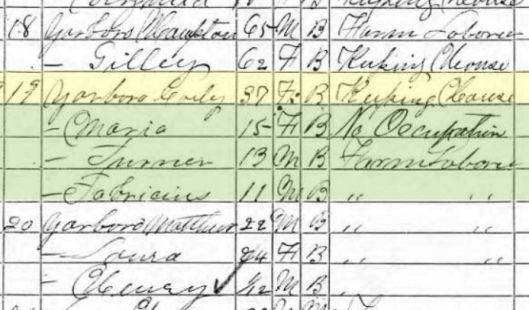 Keeping House
18 Yarboro Haughton 65 M B Farm Laborer
— Gilley 62 F B Keeping House
19 Yarboro 37 F B Keeping House
— Maria 15 F B No Occupation
— Turner 13 M B Farm Laborer
— Fabricius 11 M B " "
20 Yarboro Matthew 22 M B " "
— Laura 24 F B " "
— Henry /12 M B "